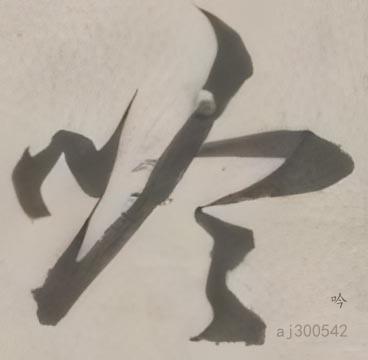 吟
吟
aj300542